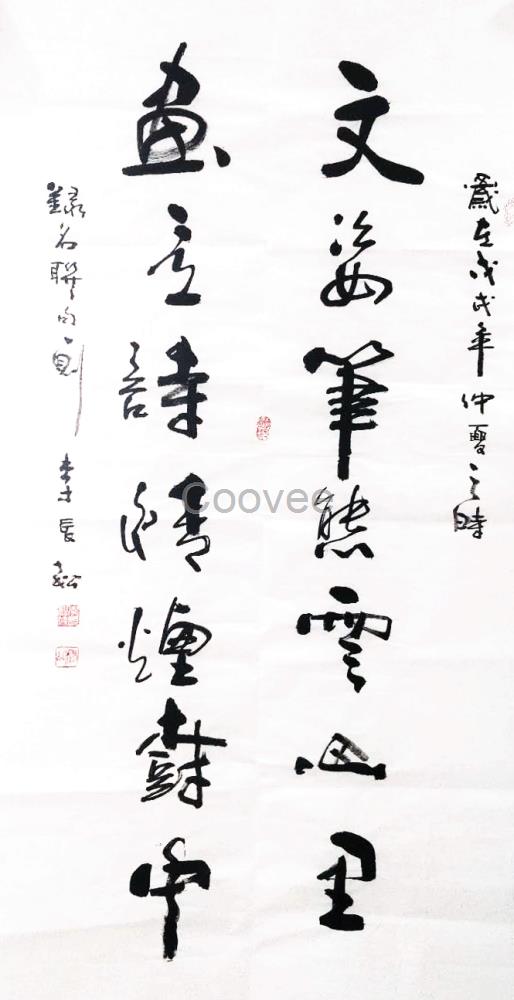 歲在戊戌年仲夏之時
文姿筆態雲山里
畫意詩情煙樹中
錄名聯句一則
Coovee